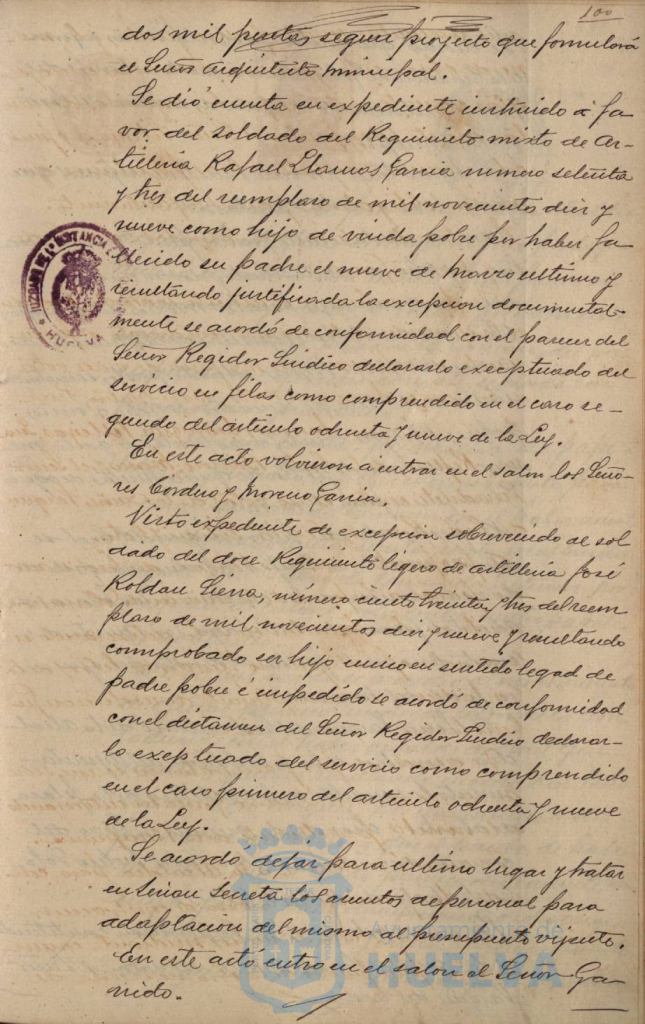 100
dos mil pesetas segun proyecto que formulará
el Señor Arquitecto Municipal.
Se dió cuenta en expediente instruido á fa-
vor del soldado del Regimiento mixto de Ar-
tilleria Rafael Llamas Garcia numero setenta
y tres del reemplazo de mil novecientos diez y
nueve como hijo de viuda pobre por haber fa-
llecido su padre el nueve de Marzo ultimo y
resultando justificada la excepcion documental-
mente se acordó de conformidad con el parecer del
Señor Regidor Sindico declararlo exceptuado del
servicio en filas como comprendido en el caso se-
gundo del articulo ochenta y nueve de la Ley.
En este acto volvieron a entrar en el salon los Seño-
res Cordero y Moreno Garcia.
Visto expediente de excepcion sobrevenido al sol
dado del doce Regimiento ligero de artilleria José
Roldan Sierra, número ciento treinta y tres del reem
plazo de mil novecientos diez y nueve y resultando
comprobado ser hijo unico en sentido legal de
padre pobre é impedido se acordó de conformidad
con el dictamen del Señor Regidor Sindico declarar-
lo exeptuado del servicio como comprendido
en el caso primero del articulo ochenta y nueve
de la Ley.
Se acordó dejar para ultimo lugar y tratar
en sesion secreta los asuntos de personal para
adaptacion del mismo al presupuesto vijente.
En este actó entro en el salon el Señor Ga-
rrido.
JUZGADO DE 1ª INSTANCIA
HUELVA
Ayuntamiento de
HUELVA